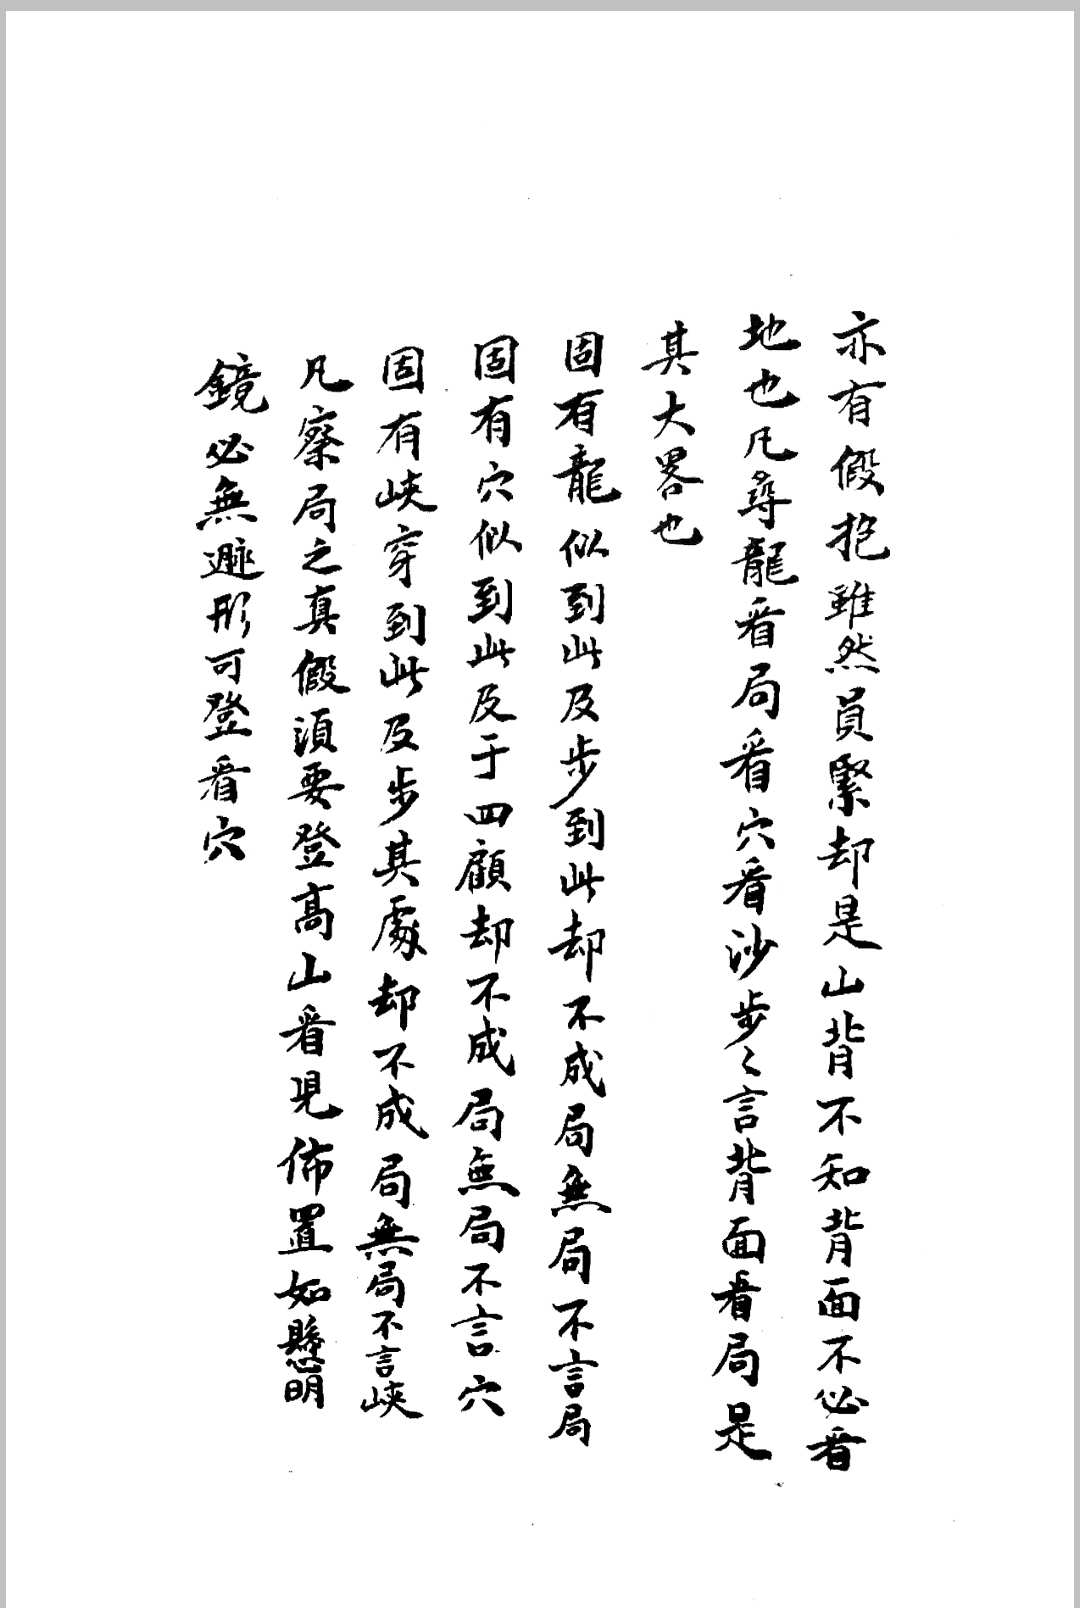 亦有假抱雖然員緊却是山背不知背面不必看
地也凡尋龍看局看穴看沙步〻言背面看局是
其大畧也
固有龍似到此及步到此却不成局無局不言局
固有穴似到此及于四顧却不成局無局不言穴
固有峽穿到此及步其處却不成局無局不言峽
凡察局之真假須要登高山看見佈置如懸明
鏡必無遯形可登看穴